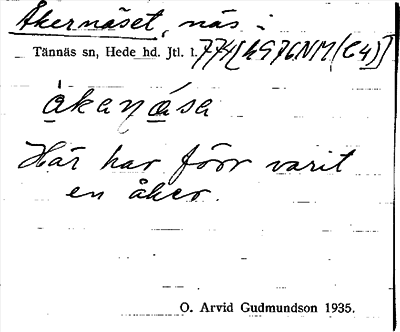 Åkernäset, näs
Tännäs sn, Hede hd. Jtl. l.
åkaɳása
Här har förr varit
en åker.
O. Arvid Gudmundson 1935.